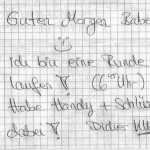 Guten Morgen Babe
ich bin eine Runde
laufen (6 Uhr)
Habe Handy + Schlüs
dabei Didier